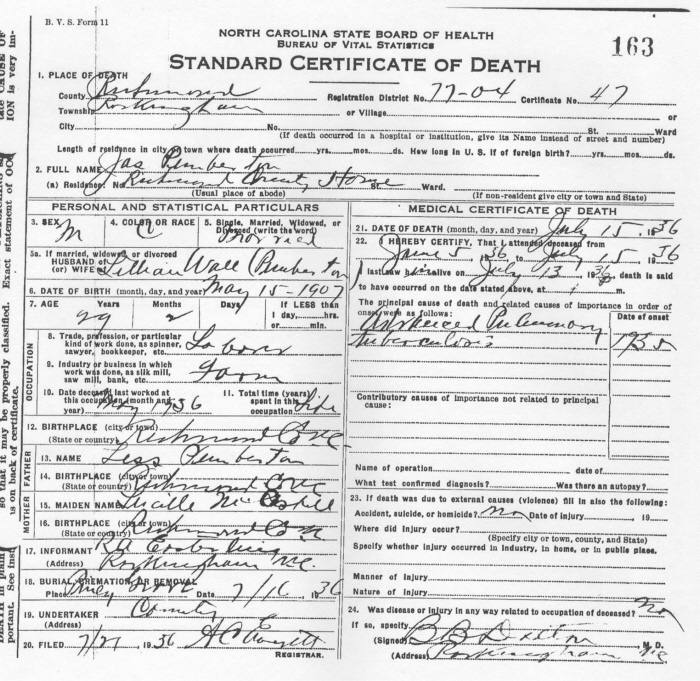 B. V. S. Form 11
NORTH CAROLINA STATE BOARD OF HEALTH
BUREAU OF VITAL STATISTICS
163
STANDARD CERTIFICATE OF DEATH
1. PLACE OF DEATH
County Richmond Registration District No. 77-04 Certificate No. 47
Township Rockingham or Village or
City No. St. Ward
(If death occurred in a hospital or institution, give its Name instead of street and number)
Length of residence in city or town where death occurred yrs. mos. ds. How long in U. S. if of foreign birth? yrs. mos. ds.
2. FULL NAME Jas Pemberton
(a) Residence: No. Richmond County Home St. Ward.
(Usual place of abode) (If non-resident give city or town and State)
PERSONAL AND STATISTICAL PARTICULARS
3. SEX M
4. COLOR OR RACE C
5. Single, Married, Widowed, or Divorced (write the word) Married
5a. If married, widowed or divorced
HUSBAND of
(or) WIFE of Lillian Wall Pemberton
6. DATE OF BIRTH (month, day, and year) May 15-1907
7. AGE Years Months Days If LESS than
1 day, hrs.
or min.
29 2
OCCUPATION
8. Trade, profession, or particular
kind of work done, as spinner,
sawyer, bookkeeper, etc. Laborer
9. Industry or business in which
work was done, as silk mill,
saw mill, bank, etc. Farm
10. Date deceased last worked at
this occupation (month and
year) May 1936
11. Total time (years)
spent in this
occupation Life
12. BIRTHPLACE (city or town)
(State or country) Richmond Co NC
FATHER
13. NAME Less Pemberton
14. BIRTHPLACE (city or town)
(State or country) Richmond Co NC
MOTHER
15. MAIDEN NAME Lucille Mc
16. BIRTHPLACE (city or town)
(State or country) Richmond Co N
17. INFORMANT
(Address) Rockingham N.C.
18. BURIAL, CREMATION OR REMOVAL
Place Date 7/16 1936
19. UNDERTAKER County
(Address)
20. FILED 7/21 1936
REGISTRAR.
MEDICAL CERTIFICATE OF DEATH
21. DATE OF DEATH (month, day, and year) July 15. 1936
22. I HEREBY CERTIFY, That I attended deceased from
June 5, 1936, to July 15, 1936
I last saw alive on July 13 1936, death is said
to have occurred on the date stated above, at m.
The principal cause of death and related causes of importance in order of
onset were as follows:
Date of onset
Advanced Pulmonary
Tuberculosis 1935
Contributory causes of importance not related to principal
cause:
Name of operation date of
What test confirmed diagnosis? Was there an autopsy?
23. If death was due to external causes (violence) fill in also the following:
Accident, suicide, or homicide? No Date of injury 19
Where did injury occur?
(Specify city or town, county, and State)
Specify whether injury occurred in industry, in home, or in public place.
Manner of Injury
Nature of Injury
24. Was disease or injury in any way related to occupation of deceased? No
If so, specify
(Signed) M. D.
(Address) Rockingham NC